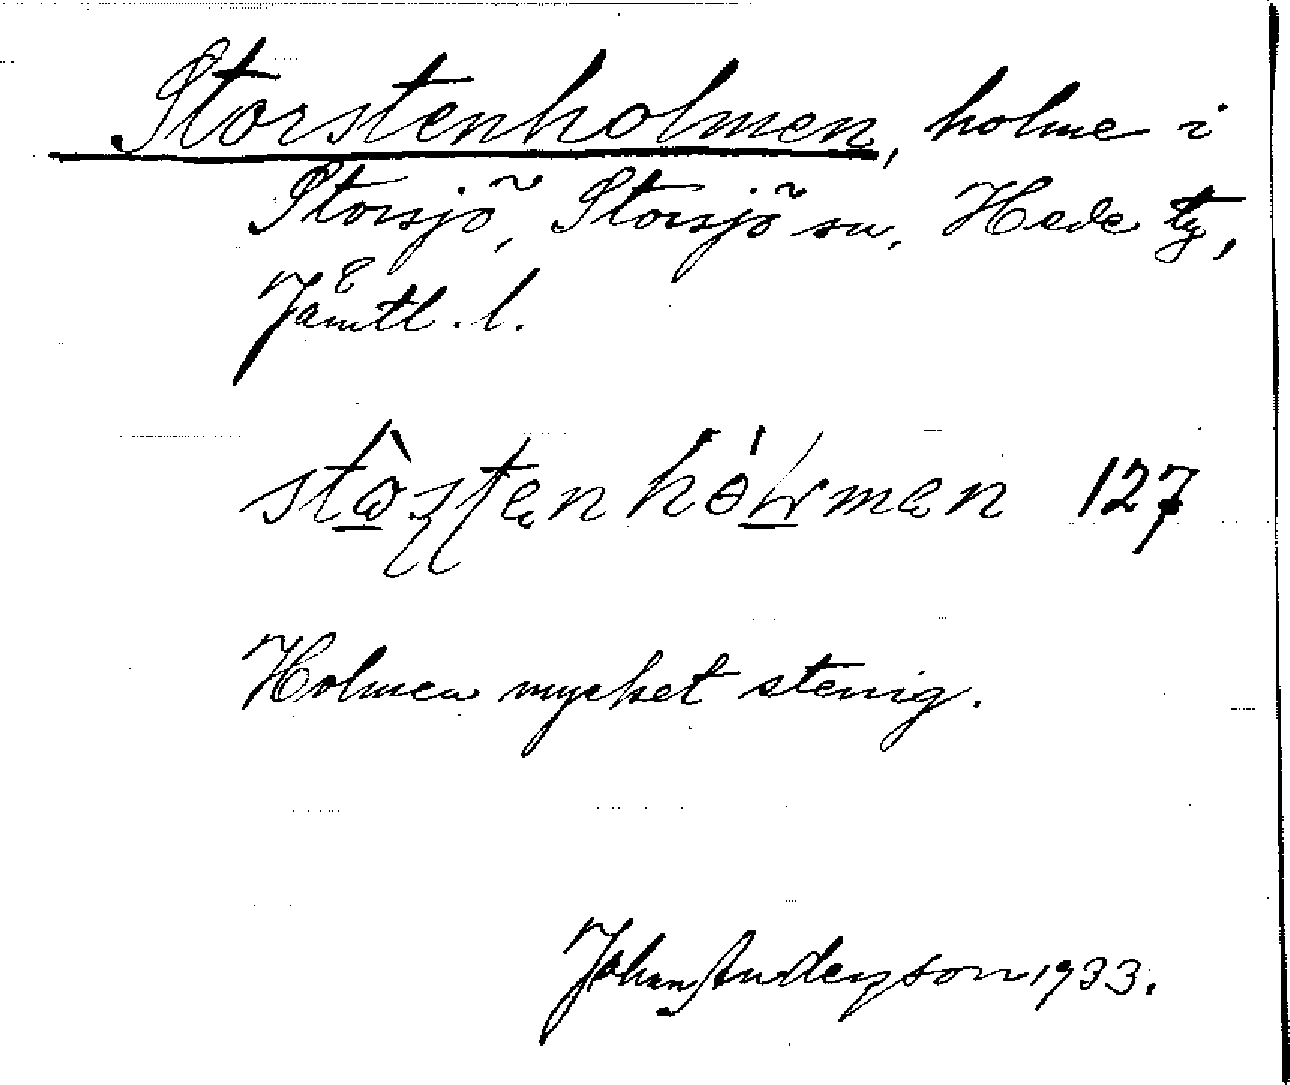 Storstenholmen, holme i
Storsjö, Storsjö sn, Hede tg,
Jämtl. l.
127
Holmen mycket stenig.
Johan Anderson 1933.